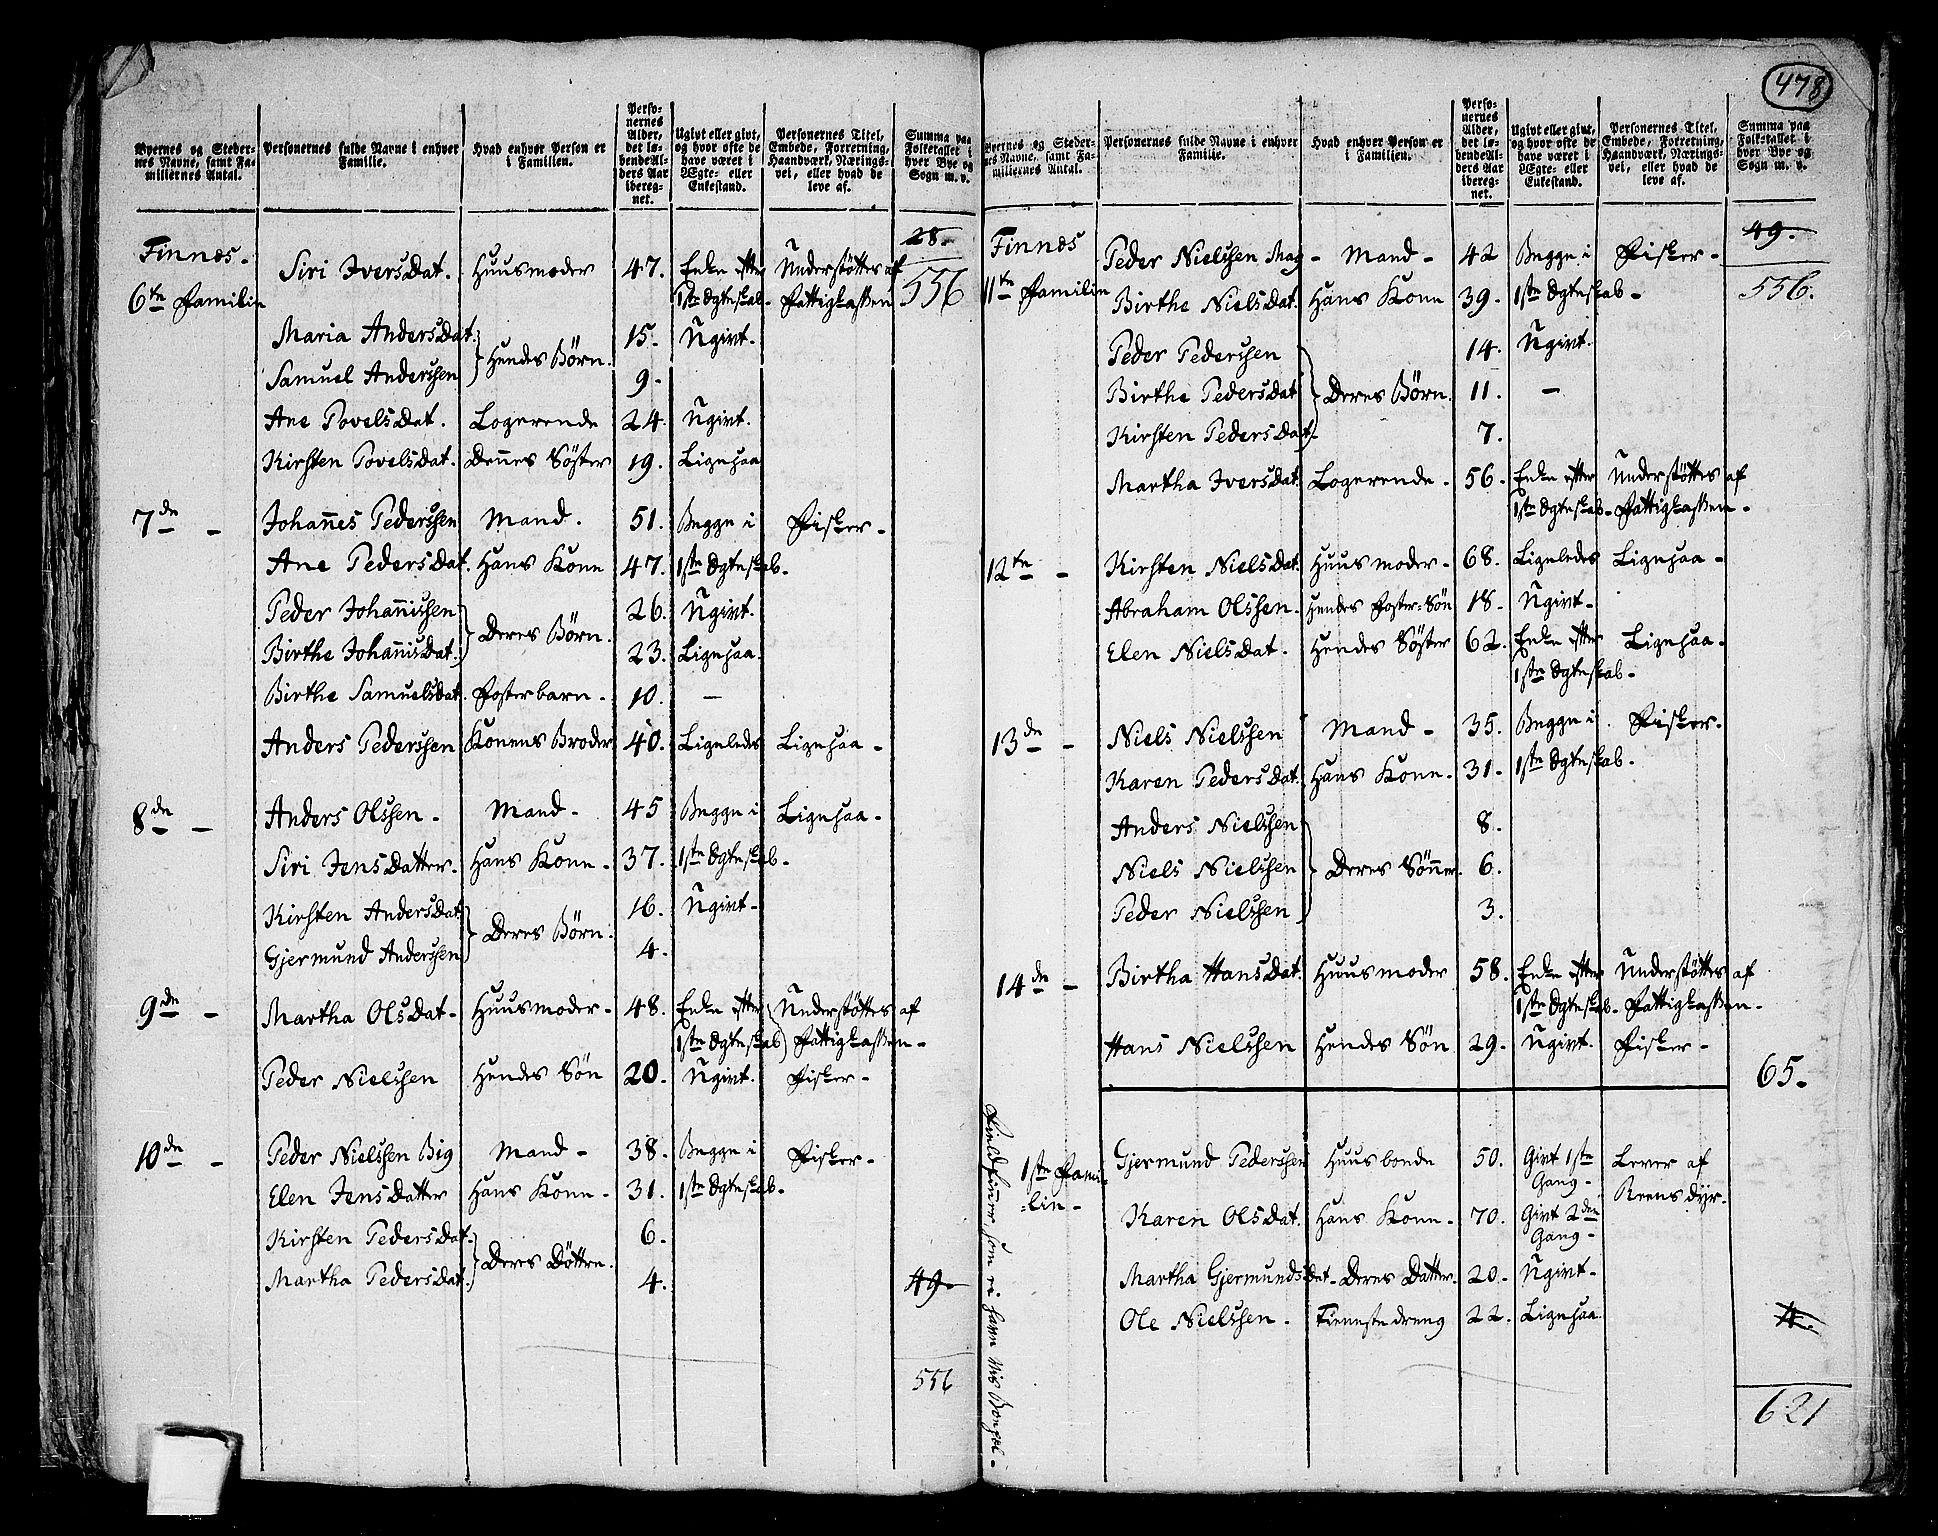 478
Byernes og Steder-
nes Navne, samt Fa-
miliernes Antal.
Personernes fulde Navne i enhver
Familie.
Hvad enhver Person er
i Familien.
Perso-
nernes
Alder,
det lø-
bende Al-
ders Aar
ibereg-
net.
Ugivt eller givt,
og hvor ofte de
have været i
Ægte- eller
Enkestand.
Personernes Titel,
Embede, Forretning,
Haandværk, Nærings-
vei, eller hvad de
leve af.
Summa paa
Folketallet i
hver Bye og
Sogn m. v.
28.
Finnæs. Siri IversDat. Huusmoder 47. Enke efter Understöttes af 556
6te Familie 1ste Egteskab. Fattigkassen
Maria AndersDat. } Hendes Börn. 15. Ugivt.
Samuel Anderssen 9.
Ane PovelsDat. Logerende 24 Ugivt.
Kirsten PovelsDat. Dennes Söster 19. Ligesaa
7de - Johannes Pederssen Mand. 51. Begge i Fisker.
Ane PedersDat. Hans Kone 47. 1ste Egteskab.
Peder Johannissen } Deres Börn. 26. Ugivt.
Birthe JohannisDat. 23. Ligesaa.
Birthe SamuelsDat. Fosterbarn. 10. -
Anders Pederssen Konens Broder 40. Ligeledes Ligesaa.
8de - Anders Olssen. Mand. 45 Begge i Ligesaa.
Siri JensDatter. Hans Kone. 37. 1ste Egteskab.
Kirsten AndersDat. } Deres Börn. 16. Ugivt.
Gjermund Anderssen 4.
9de - Martha OlsDat. Huusmoder. 48. Enke efter Understöttes af
1ste Egteskab Fattigkassen.
Peder Nielssen Hendes Sön 20. Ugivt. Fisker.
10de - Peder Nielssen Big Mand. 38. Begge i Fisker.
Elen JensDatter Hans Kone. 31. 1ste Egteskab.
Kirsten PedersDat. } Deres Döttre. 6.
Martha PedersDat. 4. 49.
556
Byernes og Steder-
nes Navne, samt Fa-
miliernes Antal.
Personernes fulde Navne i enhver
Familie.
Hvad enhver Person er
i Familien.
Perso-
nernes
Alder,
det lø-
bende Al-
ders Aar
ibereg-
net.
Ugivt eller givt,
og hvor ofte de
have været i
Ægte- eller
Enkestand.
Personernes Titel,
Embede, Forretning,
Haandværk, Nærings-
vei, eller hvad de
leve af.
Summa paa
Folketallet i
hver Bye og
Sogn m. v.
49.
Finnæs Peder Nielssen Mag - Mand. 42 Begge i Fisker.
11te Familie Birthe NielsDat. Hans Kone 39. 1ste Egteskab. 556.
Peder Pederssen } Deres Börn. 14. Ugivt.
Birthe PedersDat 11. -
Kirsten PedersDat. 7.
Martha IversDat. Logerende. 56. Enke efter Understöttes af
1ste Egteskab. Fattigkassen.
12te - Kirsten NielsDat. Huusmoder. 68. Ligeledes Ligesaa.
Abraham Olssen. Hendes Foster-Sön 18. Ugivt.
Elen NielsDat. Hendes Söster 62. Enke efter Ligesaa.
1ste Egteskab.
13de - Niels Nielssen Mand. 35. Begge i Fisker.
Karen PedersDat. Hans Kone. 31. 1ste Egteskab.
Anders Nielssen 8.
Niels Nielssen } Deres Sönner. 6.
Peder Nielssen 3.
14de - Birtha HansDat. Huusmoder 58. Enke efter Understöttes af
1ste Egteskab. Fattigkassen.
Hans Nielssen Hendes Sön 29. Ugivt. Fisker.
65.
1ste Fami- Gjermund Pederssen Huusbonde 50. Givt 1ste Lever af
lie. Gang. Reensdyr.
Karen OlsDat. Hans Kone. 70. Givt 2den
Gang.
Martha GjermundsDat. Deres Datter. 20. Ugivt.
Ole Nielssen. Tienestedreng 22. Ligesaa. 4.
621
Fieldfinner som ei have